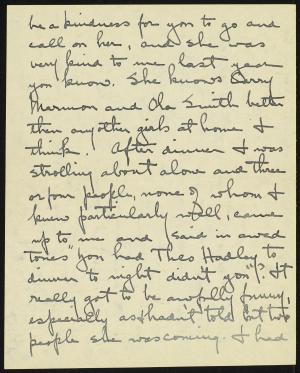 be a kindness for you to go and
call on her, and she was
very kind to me last year
you know. She knows
Marmon and Ola Smith better
then any other girls at home I
think. After dinner I was
strolling about alow and three
or four people, none of whom I
knew particularly well, came
up to me and said in awed
tones "you had Theo Hadley to
dinner to night didn't you"? It
really got to be awfully funny,
especially as I hadn't told but two
people she was coming. I had